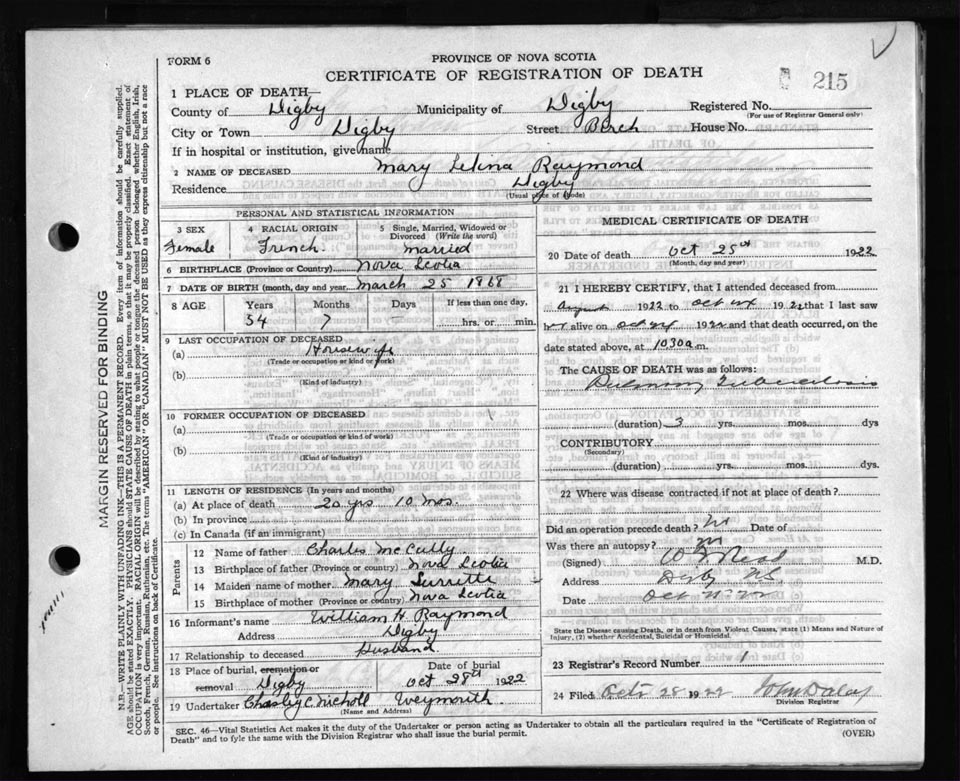 FORM 6
PROVINCE OF NOVA SCOTIA
CERTIFICATE OF REGISTRATION OF DEATH
215
1 PLACE OF DEATH—
County of Digby Municipality of Digby Registered No.
(For use of Registrar General only)
City or Town Digby Street Birch House No.
If in hospital or institution, give name
2 NAME OF DECEASED Mary Raymond
Residence Digby
(Usual place of abode)
PERSONAL AND STATISTICAL INFORMATION
3 SEX Female
4 RACIAL ORIGIN French
5 Single, Married, Widowed or Divorced (Write the word) Married
6 BIRTHPLACE (Province or Country) Nova Scotia
7 DATE OF BIRTH (month, day and year) March 25 1868
8 AGE Years Months Days If less than one day,
54 7 – hrs. or min.
9 LAST OCCUPATION OF DECEASED
(a) Housewife
(Trade or occupation or kind of work)
(b)
(Kind of industry)
10 FORMER OCCUPATION OF DECEASED
(a)
(Trade or occupation or kind of work)
(b)
(Kind of industry)
11 LENGTH OF RESIDENCE (In years and months)
(a) At place of death 20 yrs 10 mos.
(b) In province
(c) In Canada (if an immigrant)
Parents
12 Name of father Charles McCully
13 Birthplace of father (Province or country) Nova Scotia
14 Maiden name of mother Mary Surrette
15 Birthplace of mother (Province or country) Nova Scotia
16 Informant's name William H Raymond
Address Digby
17 Relationship to deceased Husband
18 Place of burial, cremation or removal Digby Date of burial Oct 28th 1922
19 Undertaker Nicholl Weymouth
(Name and Address)
MEDICAL CERTIFICATE OF DEATH
20 Date of death Oct 25th 1922
(Month, day and year)
21 I HEREBY CERTIFY, that I attended deceased from
August 1922 to Oct 24 1922 that I last saw
alive on Oct 24 1922 and that death occurred, on
date stated above, at 1030 a m.
The CAUSE OF DEATH was as follows:
Pulmonary Tuberculosis
(duration) 3 yrs. mos. dys
CONTRIBUTORY
(Secondary)
(duration) yrs. mos. dys.
22 Where was disease contracted if not at place of death?
Did an operation precede death? No Date of
Was there an autopsy? No
(Signed) M.D.
Address Digby NS
Date Oct
State the Disease causing Death, or in death from Violent Causes, state (1) Means and Nature of
Injury, (2) whether Accidental, Suicidal or Homicidal.
23 Registrar's Record Number 1
24 Filed Oct 28 1922 John Daley
Division Registrar
SEC. 46—Vital Statistics Act makes it the duty of the Undertaker or person acting as Undertaker to obtain all the particulars required in the "Certificate of Registration of
Death" and to fyle the same with the Division Registrar who shall issue the burial permit.
(OVER)
MARGIN RESERVED FOR BINDING
N.B.—WRITE PLAINLY WITH UNFADING INK—THIS IS A PERMANENT RECORD. Every item of information should be carefully supplied.
AGE should be stated EXACTLY. PHYSICIANS should STATE CAUSE OF DEATH in plain terms, so that it may be properly classified. Exact statement of
OCCUPATION is very important. RACIAL ORIGIN will be described by stating to what people or tongue the deceased person belonged whether English, Irish,
Scotch, French, German, Russian, Ruthenian, etc. The terms "AMERICAN" or "CANADIAN" MUST NOT BE USED as they express citizenship but not a race
or people. See instructions on back of Certificate.